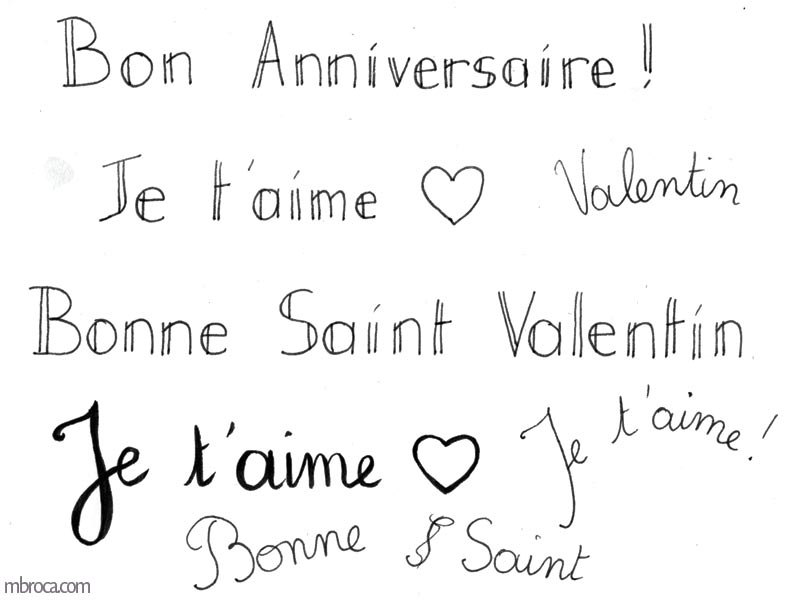 Bon Anniversaire !
Je t'aime ♡ Valentin
Bonne Saint Valentin
Je t'aime ♡ Je t'aime !
Bonne S Saint
mbroca.com